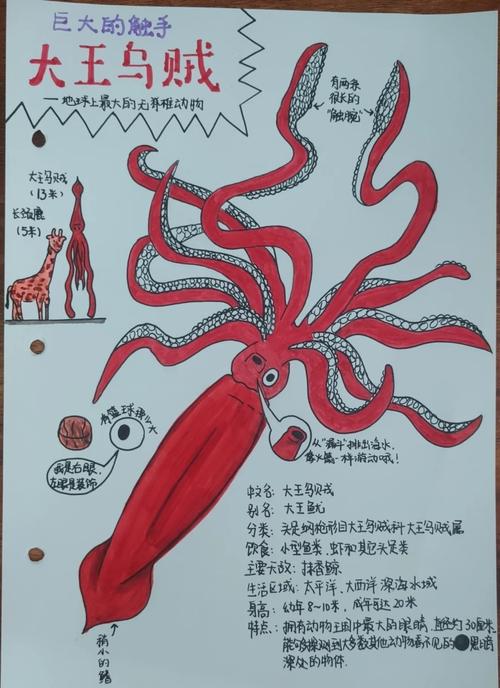 巨大的触手
大王乌贼
一地球上最大的无脊椎动物
有两条
很长的
"触腕"
大王乌贼
(13米)
长颈鹿
(5米)
有篮球那么大
我是右眼,
左眼是装饰
从"漏斗"排出海水,
像火箭一样游动哦!
稍小的鳍
中文名: 大王乌贼
别名: 大王鱿
分类: 头足纲枪形目大王乌贼科大王乌贼属
饮食: 小型鱼类、虾和其它头足类
主要天敌: 抹香鲸
生活区域: 太平洋、大西洋深海水域
身高: 幼年8~10米, 成年可达20米
特点: 拥有动物王国中最大的眼睛, 直径约30厘米,
能够探测到大多数其他动物看不见的黑暗
深处的物体.